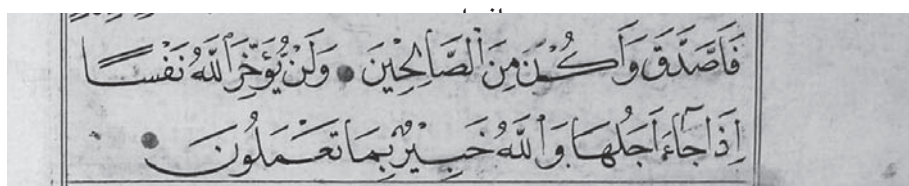 فَاَصَّدَّقَ وَاَكُنْ مِنَ الصَّالِحٖينَ وَلَنْ يُؤَخِّرَ اللّٰهُ نَفْسًا
اِذَا جَٓاءَ اَجَلُهَا وَاللّٰهُ خَبٖيرٌ بِمَا تَعْمَلُونَ